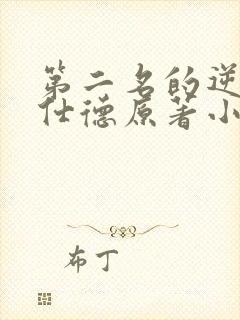 第二名的逆
仕德原著小
布丁